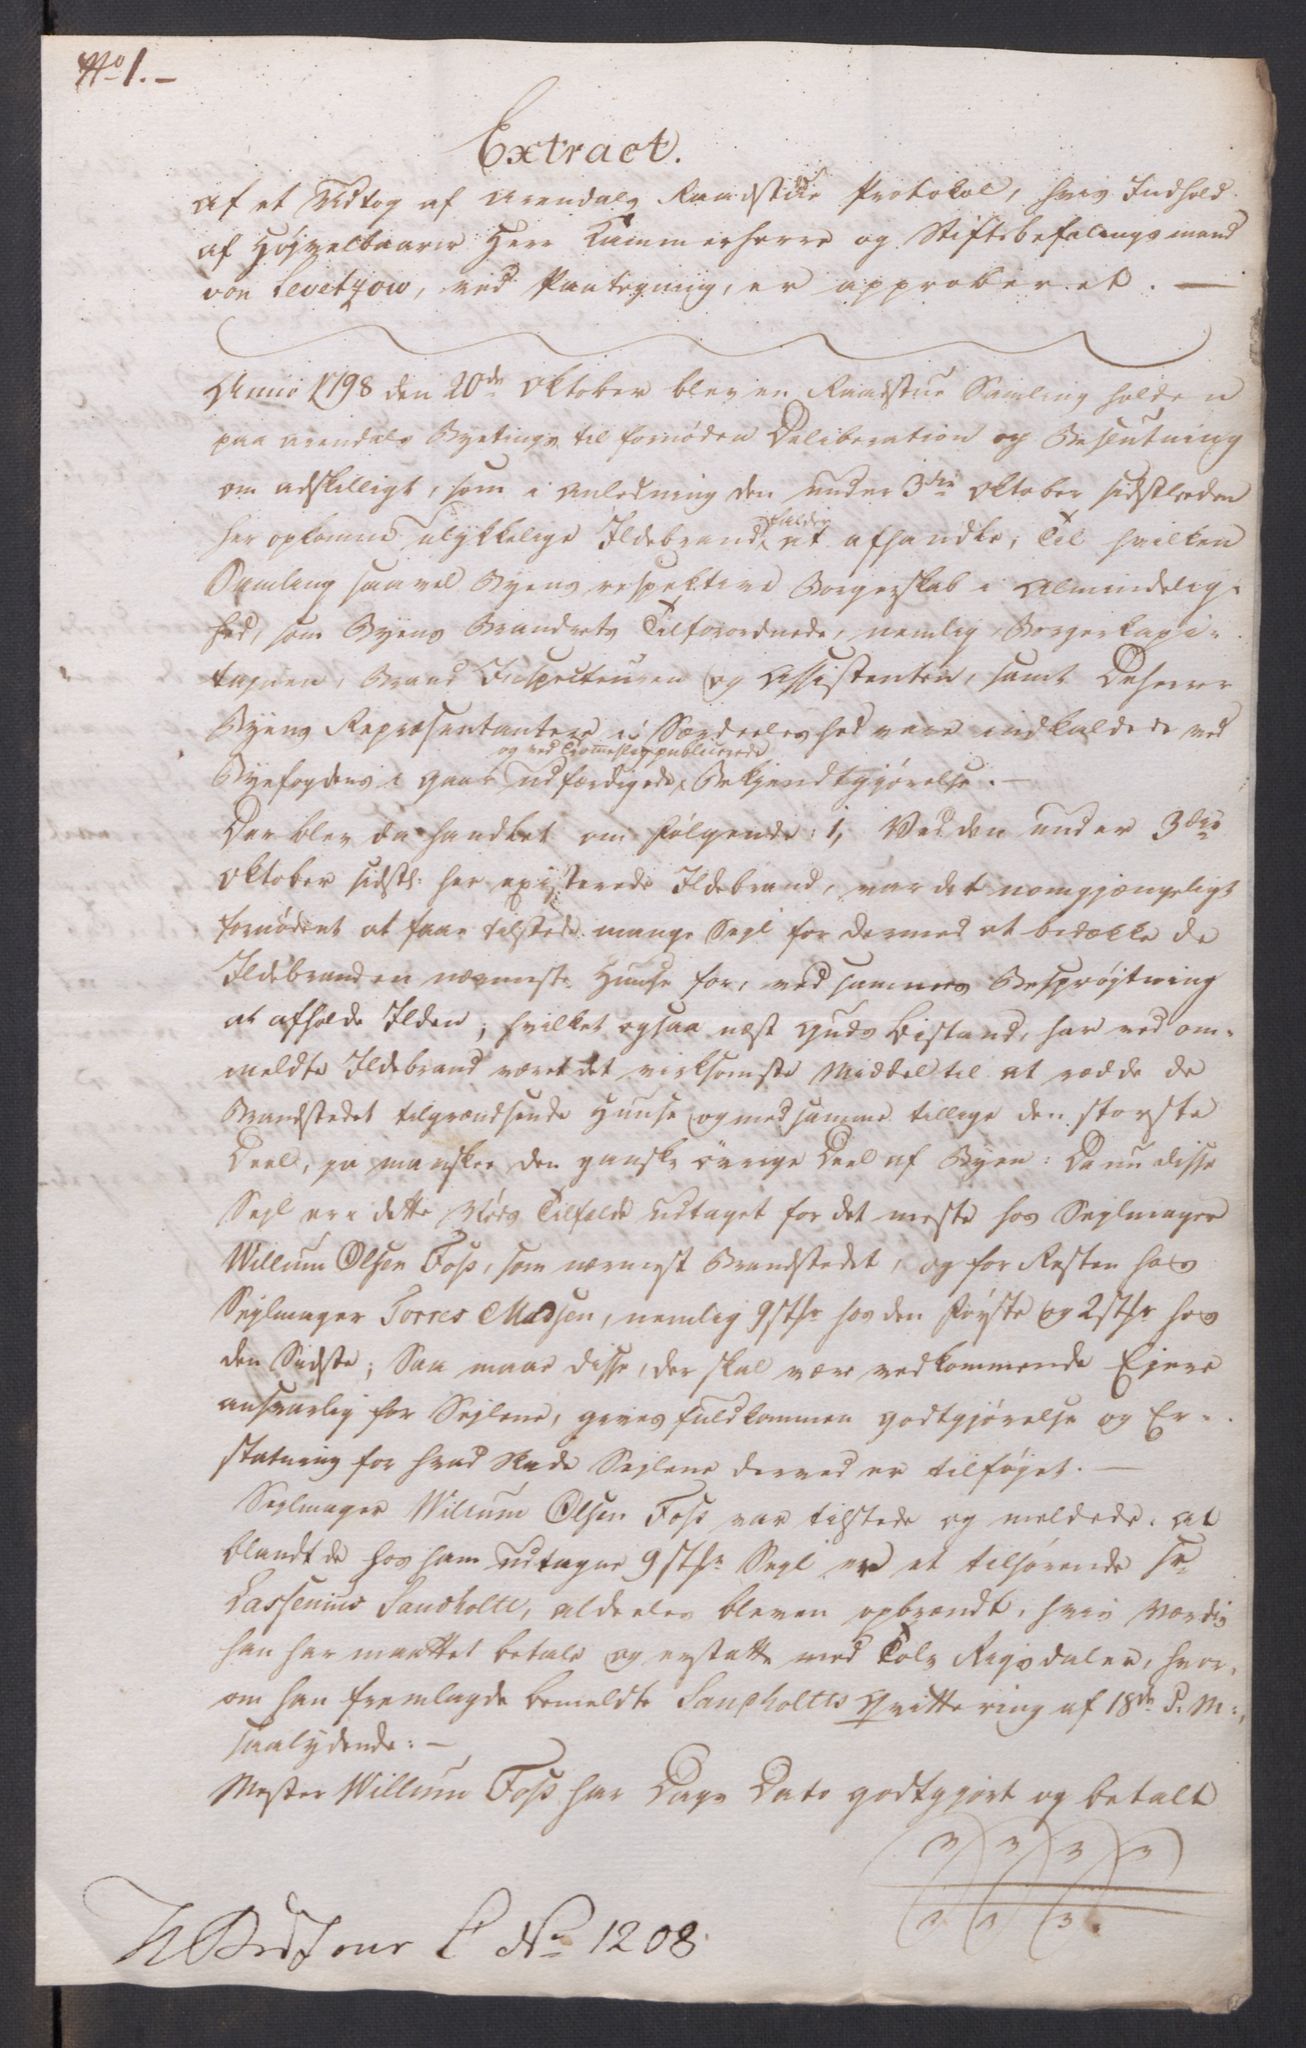 No 1.-
Extract.
Af et Udtog af Arendals Raadstue Protokol, hvis Indhold
af Høyvelbaarne Herr Kammerherre og Stiftsbefalingsmand
von Levetzow, ved Paategning, er approberet. —
Anno 1798 den 20de Oktober blev en Raadstue Samling holden
paa Arendals Byeting, til fornøden Deliberation og Beslutning
om adskilligt, som i Anledning den under 3die Oktober sidstleden
her opkomne ulykkelige Ildebrand, falder
at afhandle; Til hvilken
Samling saavel Byens respektive Borgerskab i Almindelig-
hed, som Byens Brandrets Tilforordnede, nemlig, Borgerkapi-
tajnen, Brand Inspecteuren og Assistenten, samt Deherrer
Byens Repræsentantere i Særdeeleshed vare indkaldede ved
og ved Trommeslag publicerede
Byefogdens i Gaar udfærdigede, Bekjendtgjørelse. —
Der blev da handlet om Følgende: 1, Ved den under 3die
Oktober sidstl: her existerede Ildebrand, var det uomgjængeligt
fornødent at faae tilstede mange Sejl for dermed at bedække de
Ildebranden nærmeste Huuse for, ved sammes Besprøjtning
at afholde Ilden; hvilket ogsaa næst Guds Bistand, har ved om-
meldte Ildebrand været det virksomste Middel til at redde de
Brandstedet tilgrændsende Huuse og med samme tillige den største
Deel, ja maaskee den ganske övrige Deel af Byen: Da nu disse
Sejl er i dette Nøds Tilfelde udtaget for det meste hos Sejlmager
Willum Olsen Foss, som nærmest Brandstedet, og for Resten hos
Sejlmager Torres Madsen, nemlig 9 stkr hos den Første og 2 stkr hos
den Sidste; Saa maae disse, der skal være vedkommende Ejere
ansvarlig for Sejlene, gives fuldkommen Godtgjørelse og Er-
statning for hvad Skade Sejlene derved er tilföjet. —
Sejlmager Willum Olsen Foss var tilstede og meldede, at
blandt de hos ham udtagne 9 stkr Sejl er et tilhørende Hr
Lassenius Sandholte, aldeeles bleven opbrændt, hvis Værdie
han har maattet betale og erstatte med Tolv Rigsdaler, hvor-
om han fremlagde bemeldte Sandholtes Qvittering af 18de d. M:,
saalydende: —
Mester Willum Foss har Dags Dato godtgjort og betalt
C No 1208.